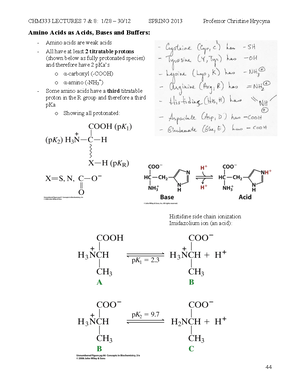 CHM333 LECTURES 7 & 9: 1/28 – 30/12 SPRING 2013 Professor Christine Hrycyna
Amino Acids as Acids, Bases and Buffers:
- Amino acids are weak acids
- All have at least 2 titratable protons
(shown below as fully protonated species)
and therefore have 2 pKa's
o α-carboxyl (-COOH)
o α-amino (-NH3+)
- Some amino acids have a third titratable
proton in the R group and therefore a third
pKa
o Showing all protonated:
- Cysteine (Cys, C) has -SH
- Tyrosine (Y, Tyr) has -OH
- Lysine (Lys, K) has -NH3+
- Arginine (Arg, R) has =NH2+
- Histidine (His, H) has
NH
- Aspartate (Asp, D) has -COOH
- Glutamate (Glu, E) has -COOH
COOH (pK1)
(pK2) H3N+ C H
X—H (pKR)
X=S, N, C—O−
O
COO− H+ COO−
HC CH2 N HC CH2 NH+
NH3+ N H H+ NH3+ N H
Base Acid
Histidine side chain ionization
Imidazolium ion (an acid)
COOH COO−
H3N+CH ⇌ H3N+CH + H+
pK1 = 2.3
CH3 CH3
A B
COO− COO−
pK2 = 9.7
H3N+CH ⇌ H2NCH + H+
CH3 CH3
B C
44